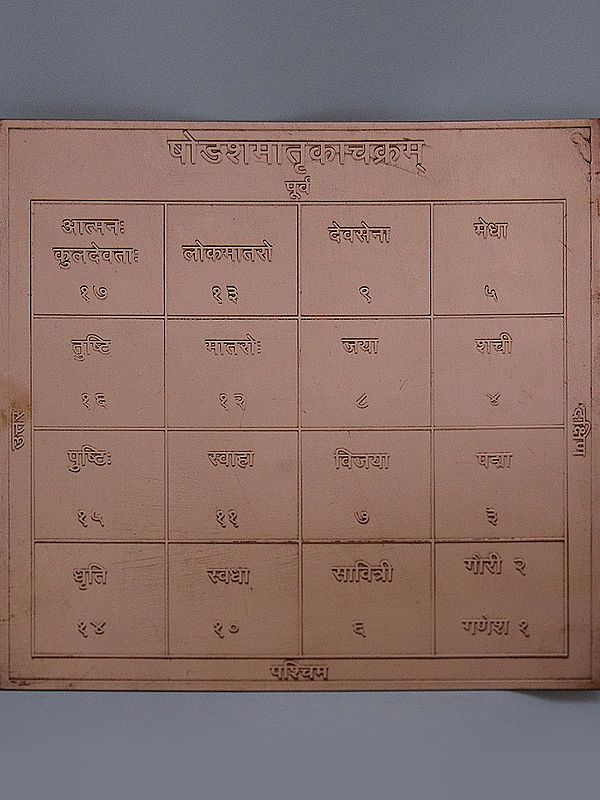 षोडशमातृकाचक्रम्
पूर्व
आत्मनः
कुलदेवताः
१७
लोकमातरो
१३
देवसेना
९
मेधा
५
तुष्टि
१६
मातरोः
१२
जया
८
शची
४
उत्तर
दक्षिण
पुष्टिः
१५
स्वाहा
११
विजया
७
पद्मा
३
धृति
१४
स्वधा
१०
सावित्री
६
गौरी २
गणेश १
पश्चिम